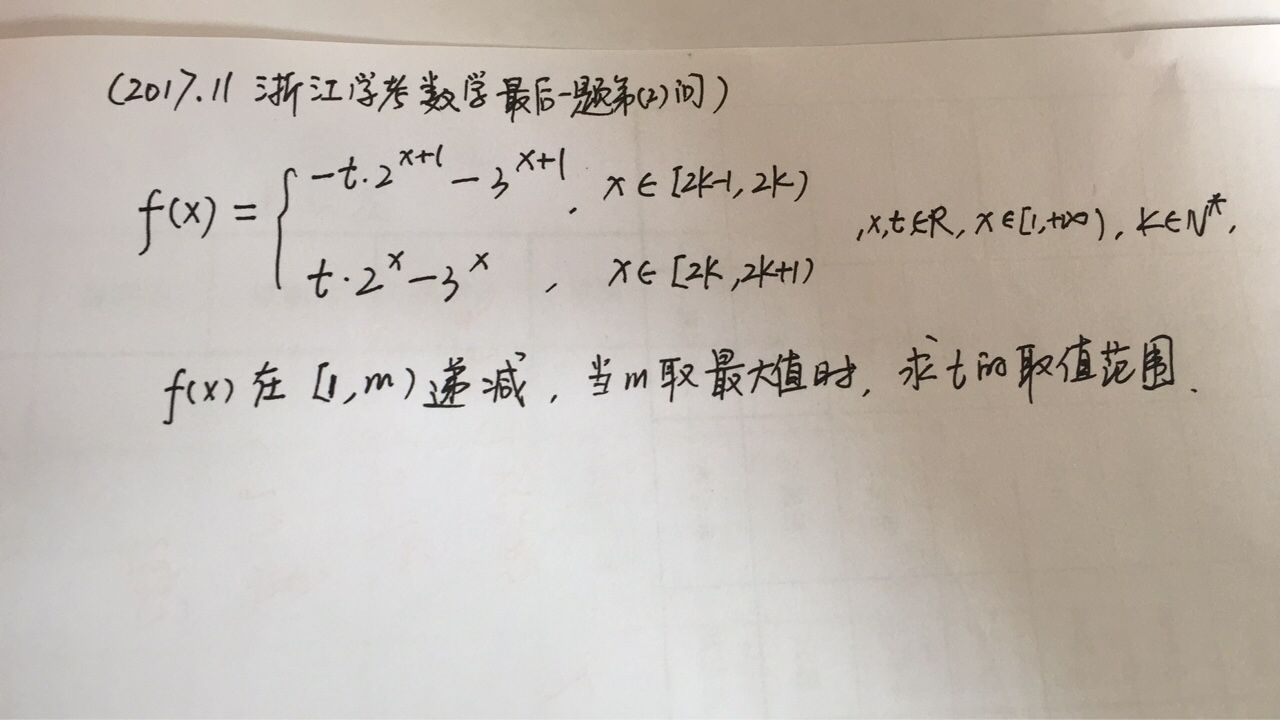 (2017.11 浙江学考数学最后一题第(2)问)
f(x) = { -t·2^{x+1} - 3^{x+1}, x∈[2k-1, 2k)
t·2^x - 3^x , x∈[2k, 2k+1)
, x,t∈R, x∈[1,+∞), k∈N*,
f(x) 在 [1, m) 递减, 当m取最大值时, 求t的取值范围.